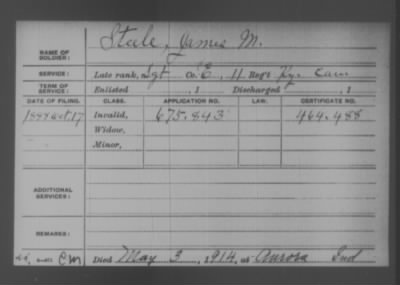 NAME OF SOLDIER: Steele, James M.
SERVICE: Late rank, Sgt Co. E, 11 Reg't Ky. Cav.
TERM OF SERVICE: Enlisted , 1 Discharged , 1
DATE OF FILING. CLASS. APPLICATION NO. LAW. CERTIFICATE NO.
Oct. 17 Invalid, 675.843 464.488
Widow,
Minor,
ADDITIONAL SERVICES:
REMARKS:
CM Died May 3, 1914, at Aurora Ind